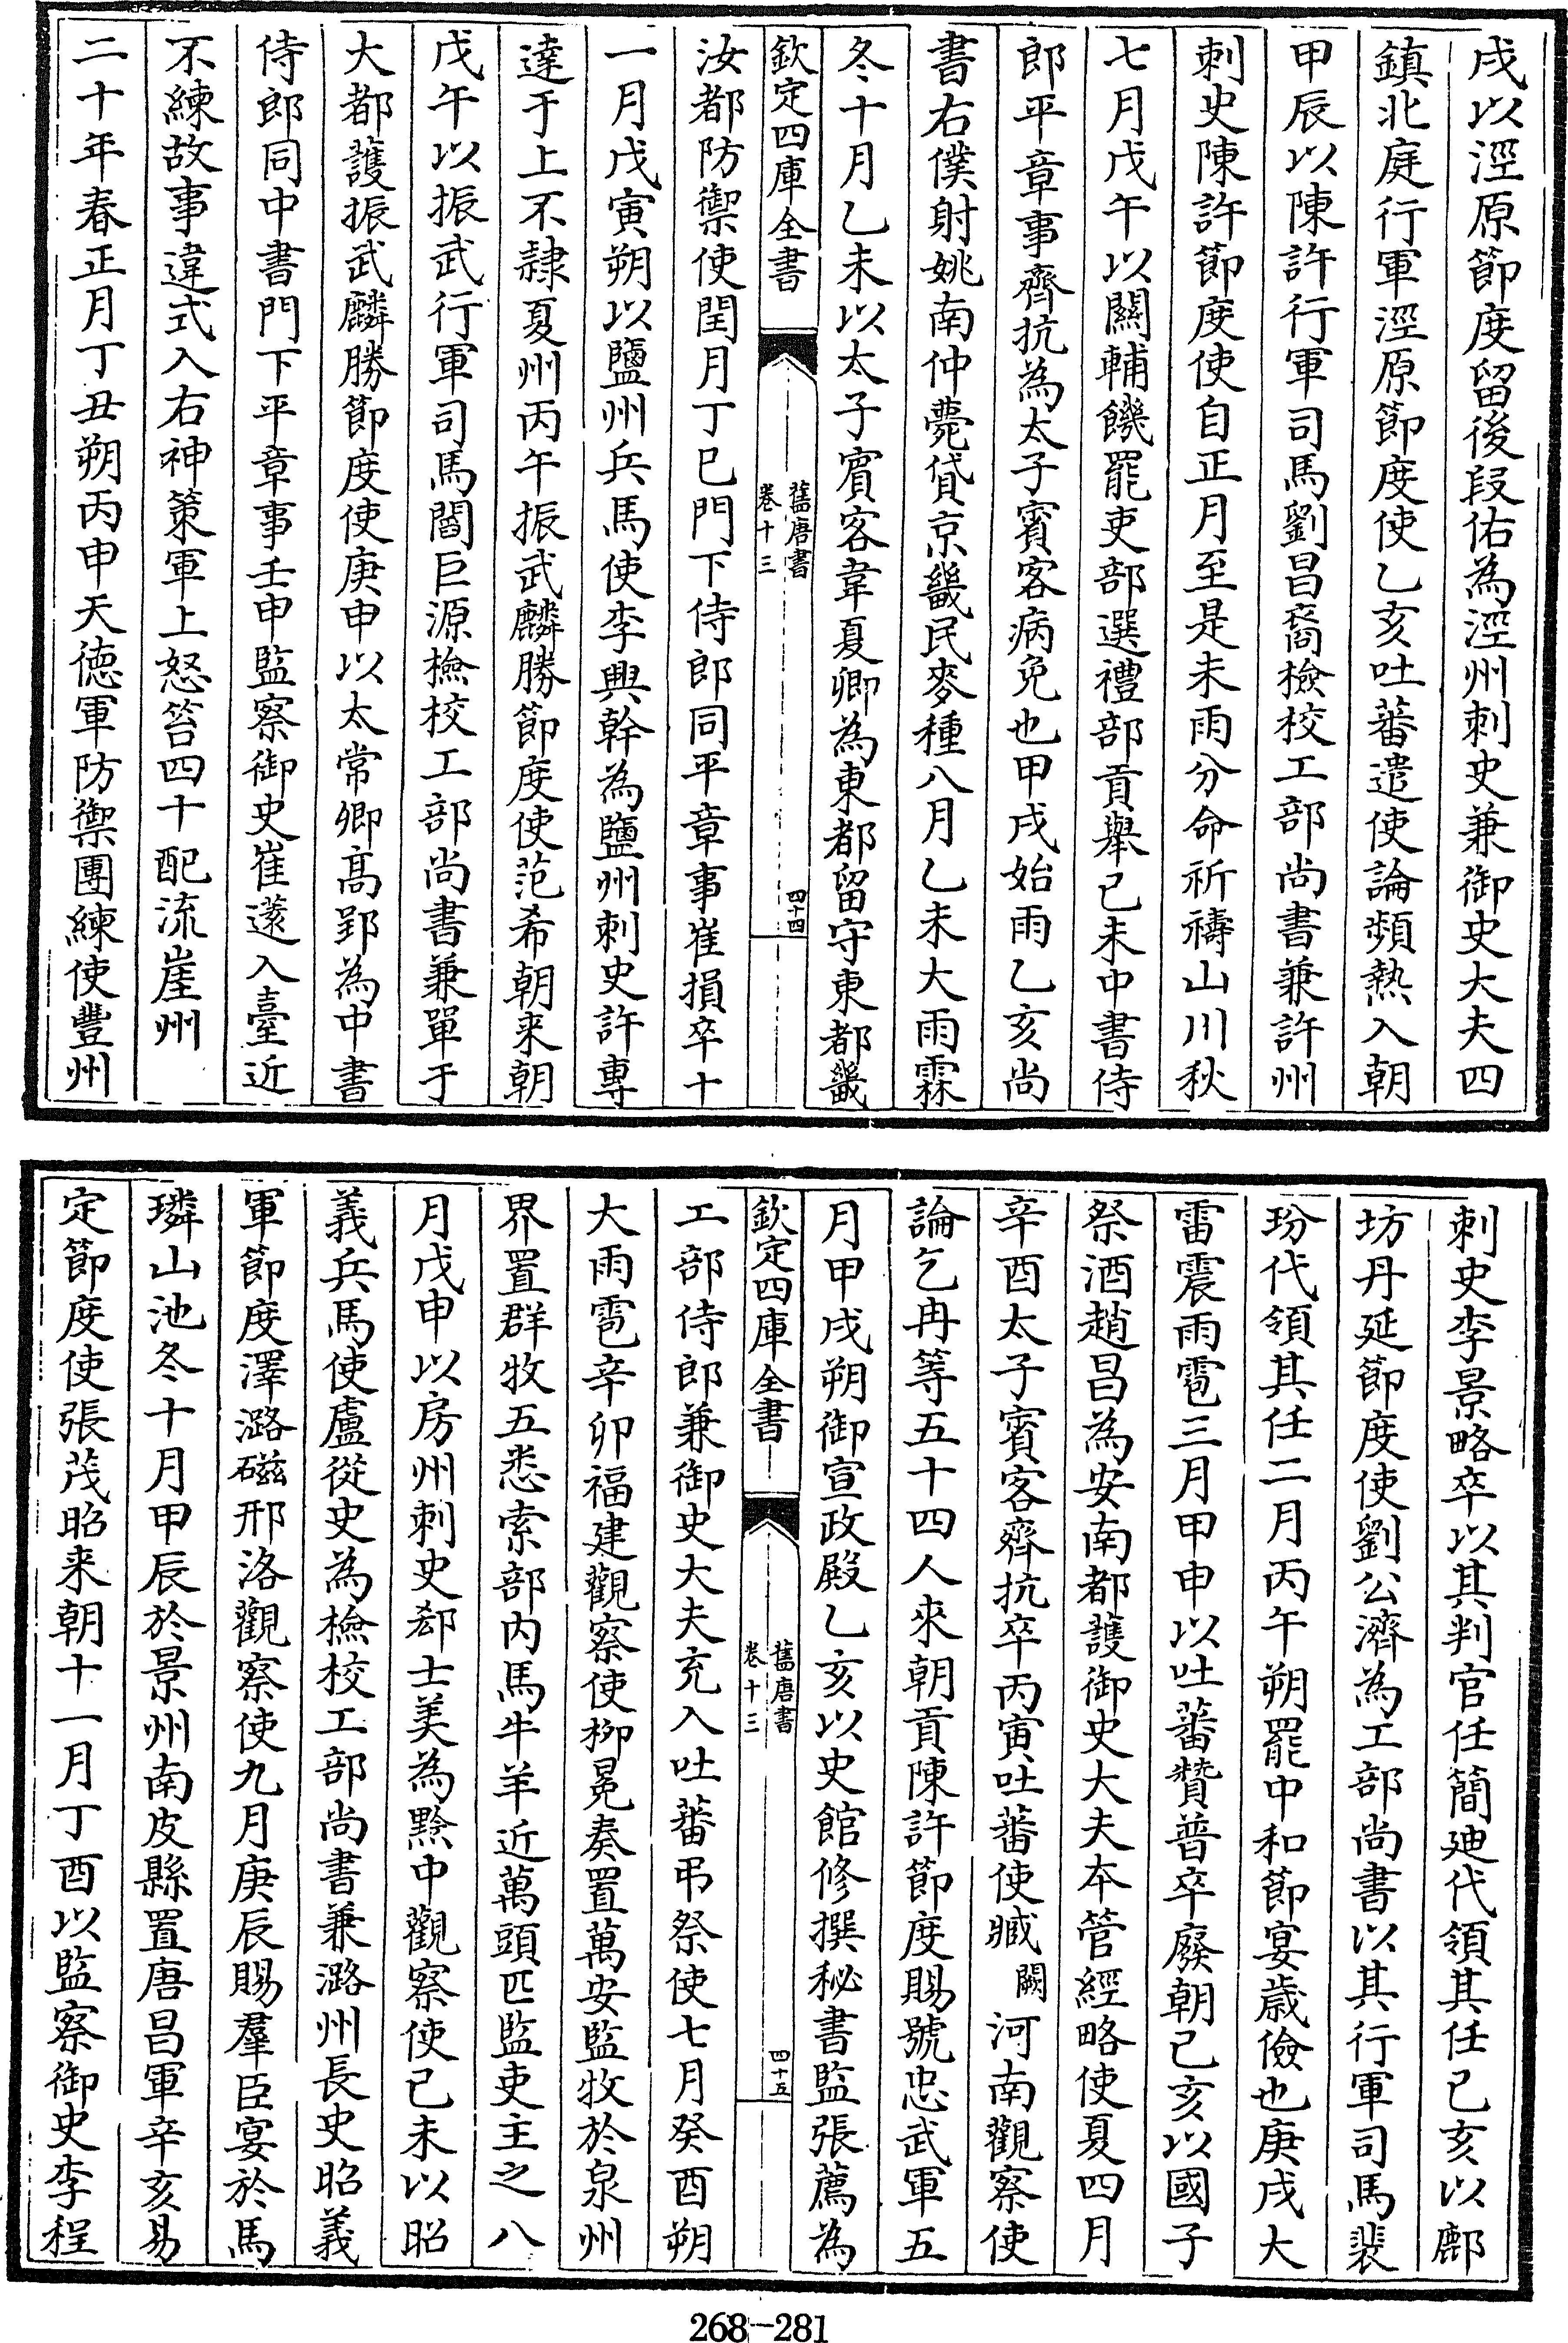 戌以涇原節度留後段佑為涇州刺史兼御史大夫四
鎮北庭行軍涇原節度使乙亥吐蕃遣使論頰熱入朝
甲辰以陳許行軍司馬劉昌裔檢校工部尚書兼許州
刺史陳許節度使自正月至是未雨分命祈禱山川秋
七月戊午以關輔饑罷吏部選禮部貢舉己未中書侍
郎平章事齊抗為太子賓客病免也甲戌始雨乙亥尚
書右僕射姚南仲薨貸京畿民麥種八月乙未大雨霖
冬十月乙未以太子賓客韋夏卿為東都留守東都畿
欽定四庫全書
舊唐書
卷十三
四十四
汝都防禦使閏月丁巳門下侍郎同平章事崔損卒十
一月戊寅朔以鹽州兵馬使李興幹為鹽州刺史許專
達于上不隸夏州丙午振武麟勝節度使范希朝來朝
戊午以振武行軍司馬閻巨源檢校工部尚書兼單于
大都護振武麟勝節度使庚申以太常卿高郢為中書
侍郎同中書門下平章事壬申監察御史崔薳入臺近
不練故事違式入右神策軍上怒笞四十配流崖州
二十年春正月丁丑朔丙申天德軍防禦團練使豐州
刺史李景略卒以其判官任簡廸代領其任己亥以鄜
坊丹延節度使劉公濟為工部尚書以其行軍司馬裴
玢代領其任二月丙午朔罷中和節宴歲儉也庚戌大
雷震雨雹三月甲申以吐蕃贊普卒廢朝己亥以國子
祭酒趙昌為安南都護御史大夫本管經略使夏四月
辛酉太子賓客齊抗卒丙寅吐蕃使臧闕河南觀察使
論乞冉等五十四人來朝貢陳許節度賜號忠武軍五
月甲戌朔御宣政殿乙亥以史館修撰秘書監張薦為
欽定四庫全書
舊唐書
卷十三
四十五
工部侍郎兼御史大夫充入吐蕃弔祭使七月癸酉朔
大雨雹辛卯福建觀察使柳冕奏置萬安監牧於泉州
界置群牧五悉索部内馬牛羊近萬頭匹監吏主之八
月戊申以房州刺史郄士美為黔中觀察使己未以昭
義兵馬使盧從史為檢校工部尚書兼潞州長史昭義
軍節度澤潞磁邢洺觀察使九月庚辰賜羣臣宴於馬
璘山池冬十月甲辰於景州南皮縣置唐昌軍辛亥易
定節度使張茂昭來朝十一月丁酉以監察御史李程
268-281